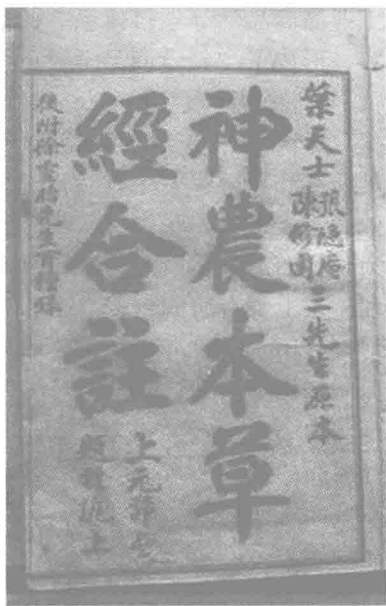 葉天士
張隱庵
陳修園
三先生原本
神農本草
經合註
上元
滬上
後附徐靈胎先生百種錄